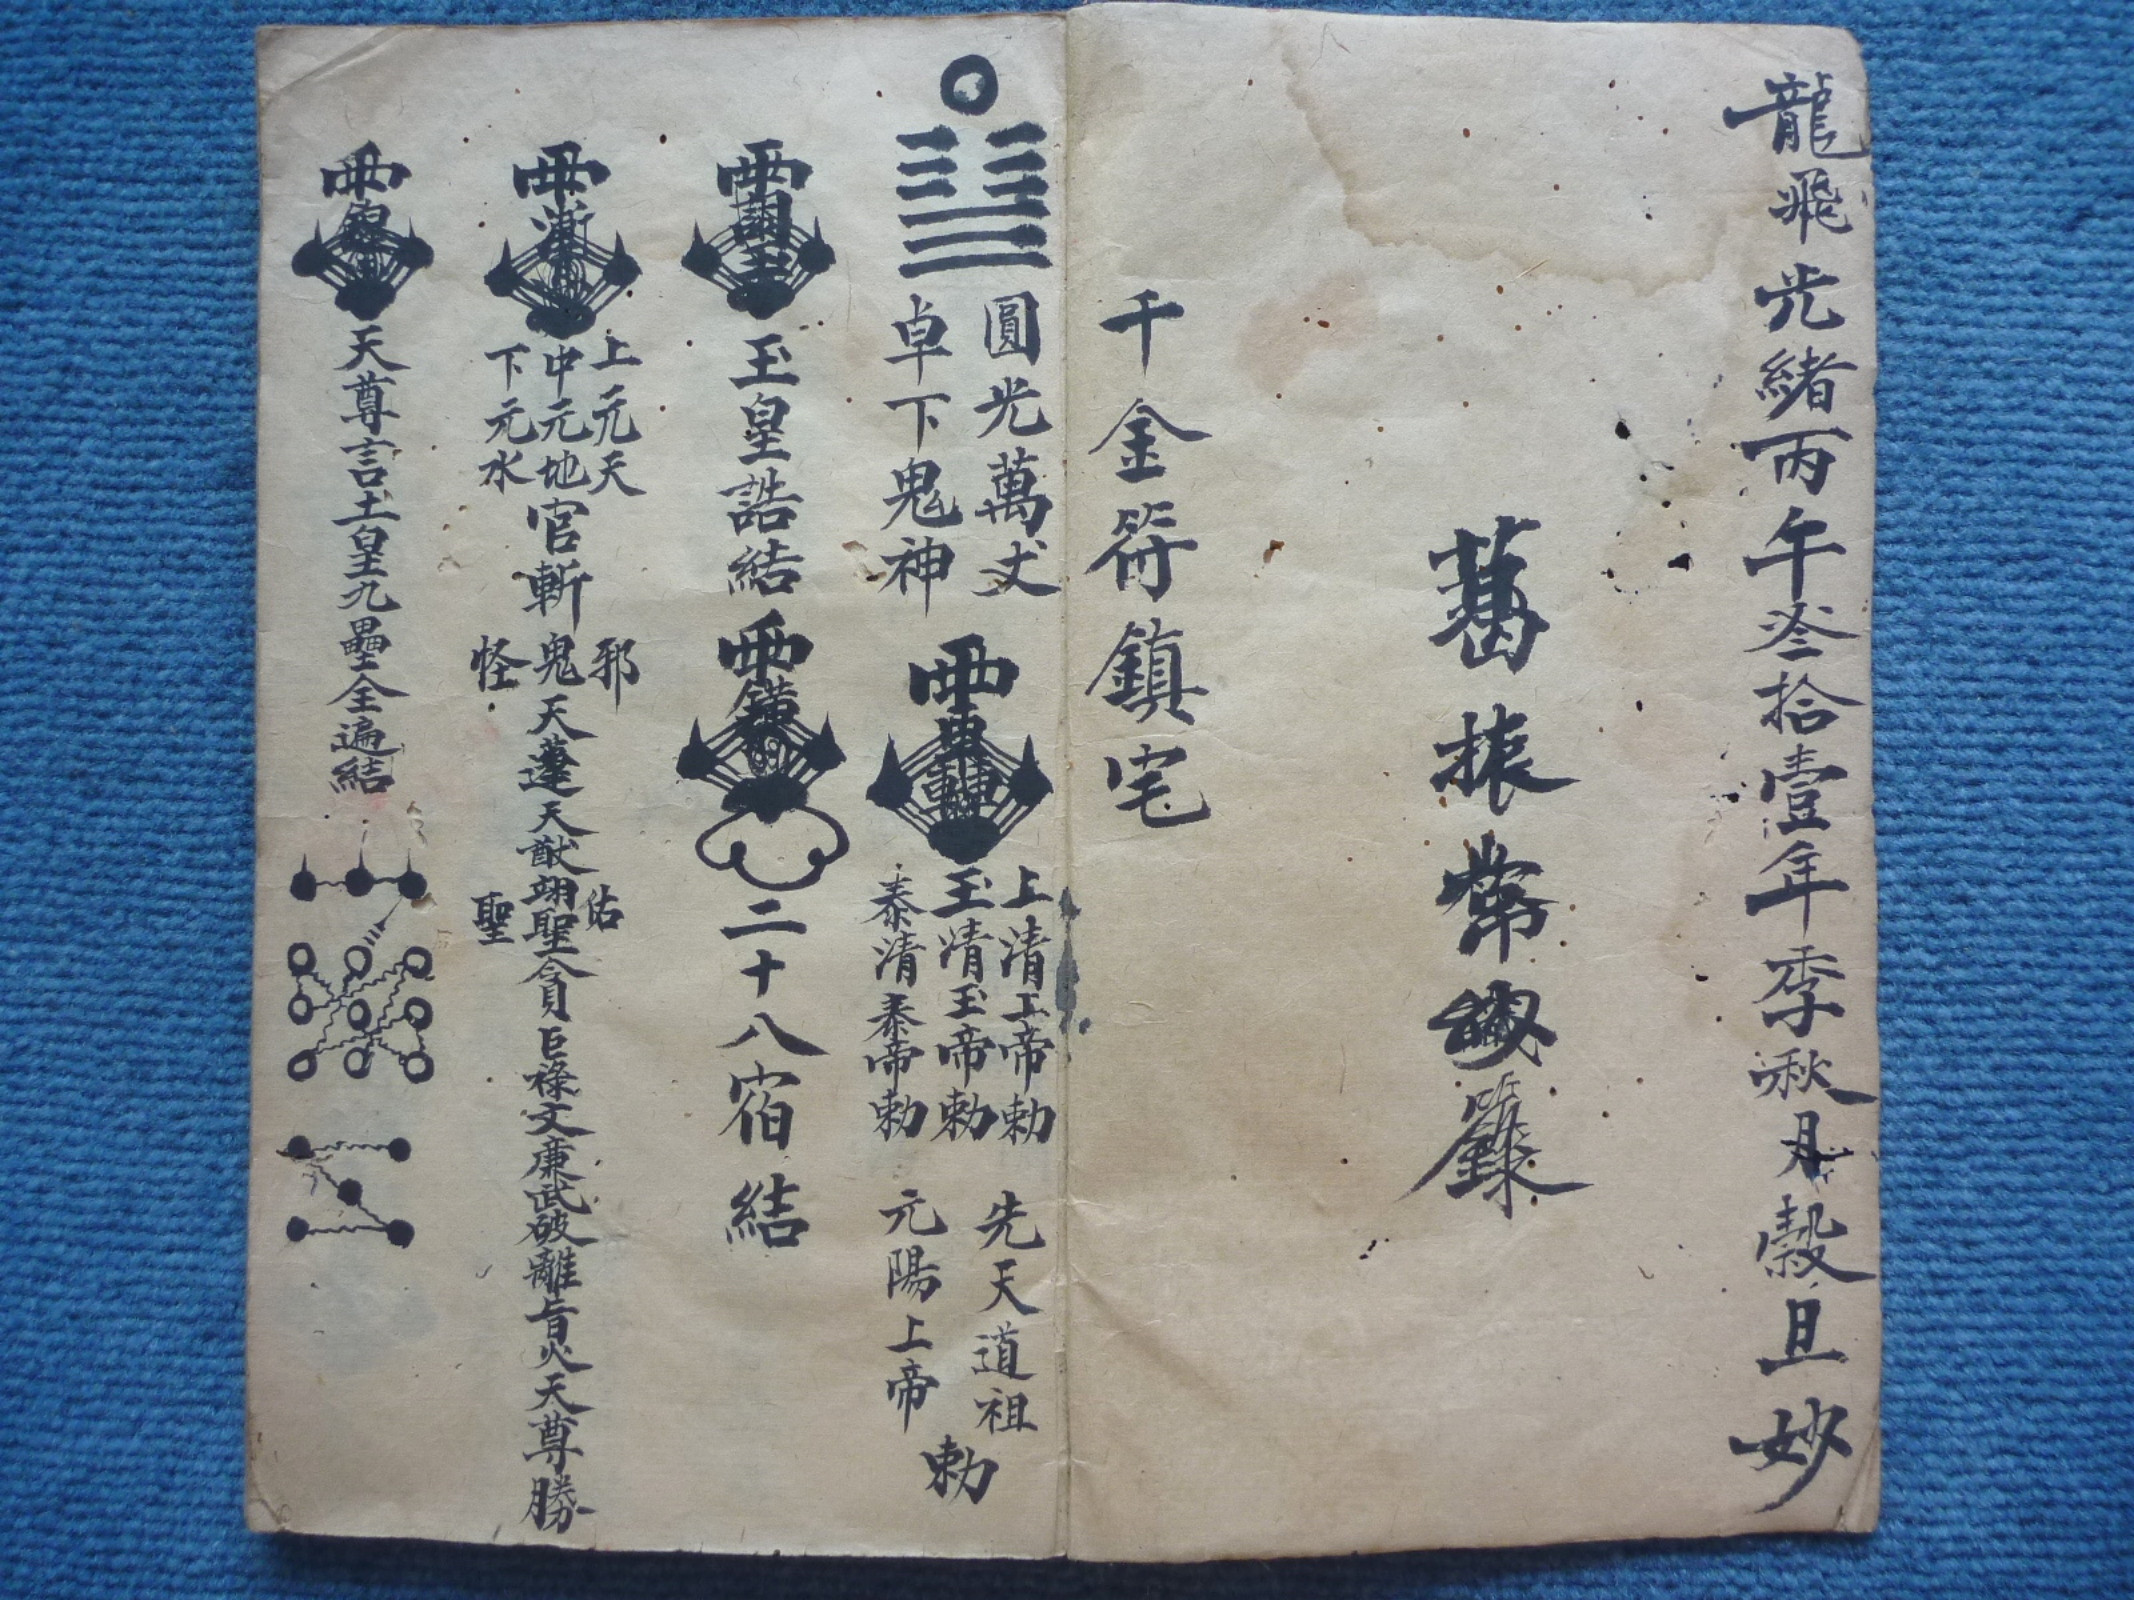 龍飛光緒丙午叁拾壹年季秋月穀旦妙
葛振常
籙
千金符鎮宅
圓光萬丈
卓下鬼神
上清上帝勅
玉清玉帝勅
泰清泰帝勅
先天道祖
元陽上帝
勅
玉皇誥結
二十八宿結
上元天
中元地
下元水
官斬
邪
鬼
怪
天蓬天猷翊聖
佑
聖
貪巨祿文廉武破離盲火天尊勝
天尊言土皇九壘全遍結